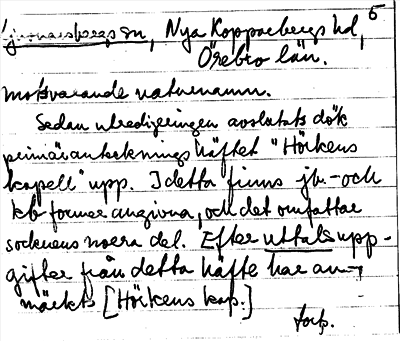 5
Ljusnarsbergs sn, Nya Kopparbergs hd,
Örebro län.
motsvarande naturnamn.
Sedan utredigeringen avslutats dök
primäranteckningshäftet "Hörkens
kapell" upp. I detta finns jb.- och
kb former angivna, och det omfattar
socknens norra del. Efter uttalsupp-
gifter från detta häfte har an-
märkts [Hörkens kap.]
forts.